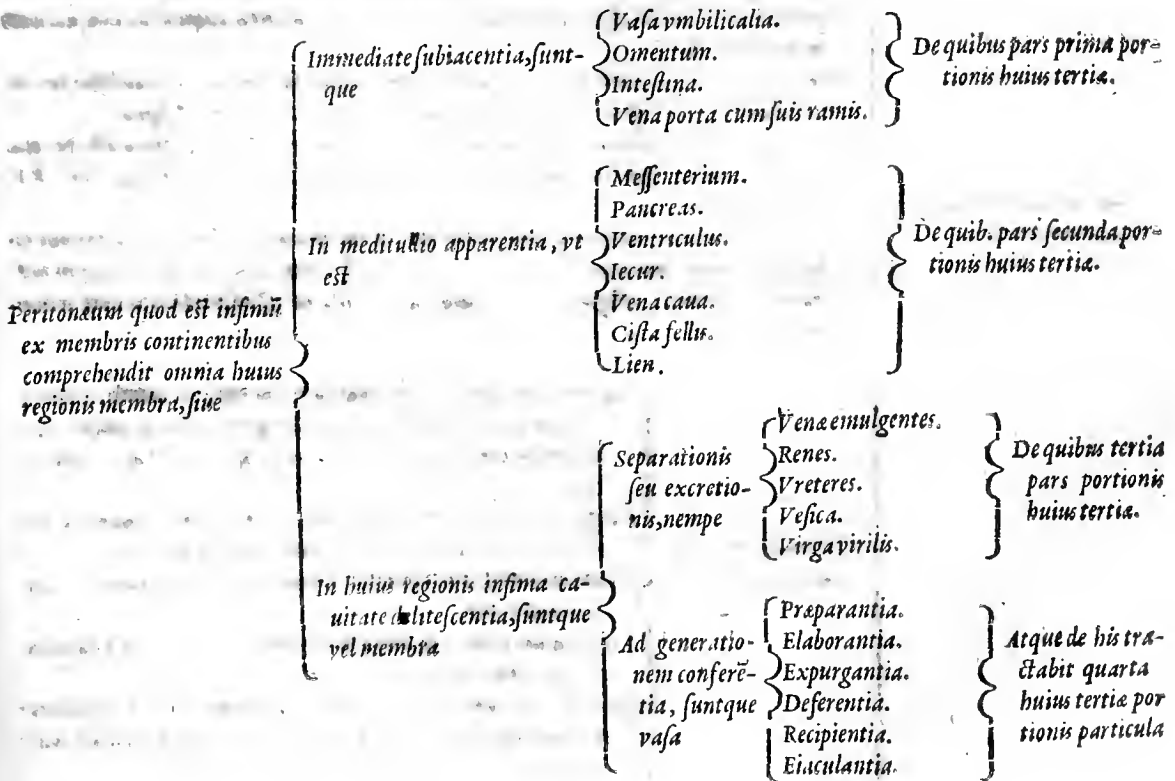 Peritonæum quod eſt infimũ
ex membris continentibus
comprehendit omnia huius
regionis membra, ſiue
Immediate ſubiacentia, ſunt-
que
Vaſa vmbilicalia.
Omentum.
Inteſtina.
Vena porta cum ſuis ramis.
De quibus pars prima por=
tionis huius tertiæ.
In meditullio apparentia, vt
eſt
Meſſenterium.
Pancreas.
Ventriculus.
Iecur.
Vena caua.
Ciſta fellis.
Lien.
De quib. pars ſecunda por=
tionis huius tertiæ.
In huius regionis infima ca-
uitate deliteſcentia, ſuntque
vel membra
Separationis
ſeu excretio-
nis, nempe
Venæ emulgentes.
Renes.
Vreteres.
Veſica.
Virga virilis.
De quibus tertia
pars portionis
huius tertiæ.
Ad generatio-
nem conferẽ-
tia, ſuntque
vaſa
Præparantia.
Elaborantia.
Expurgantia.
Deferentia.
Recipientia.
Eiaculantia.
Atque de his tra-
ctabit quarta
huius tertiæ por
tionis particula